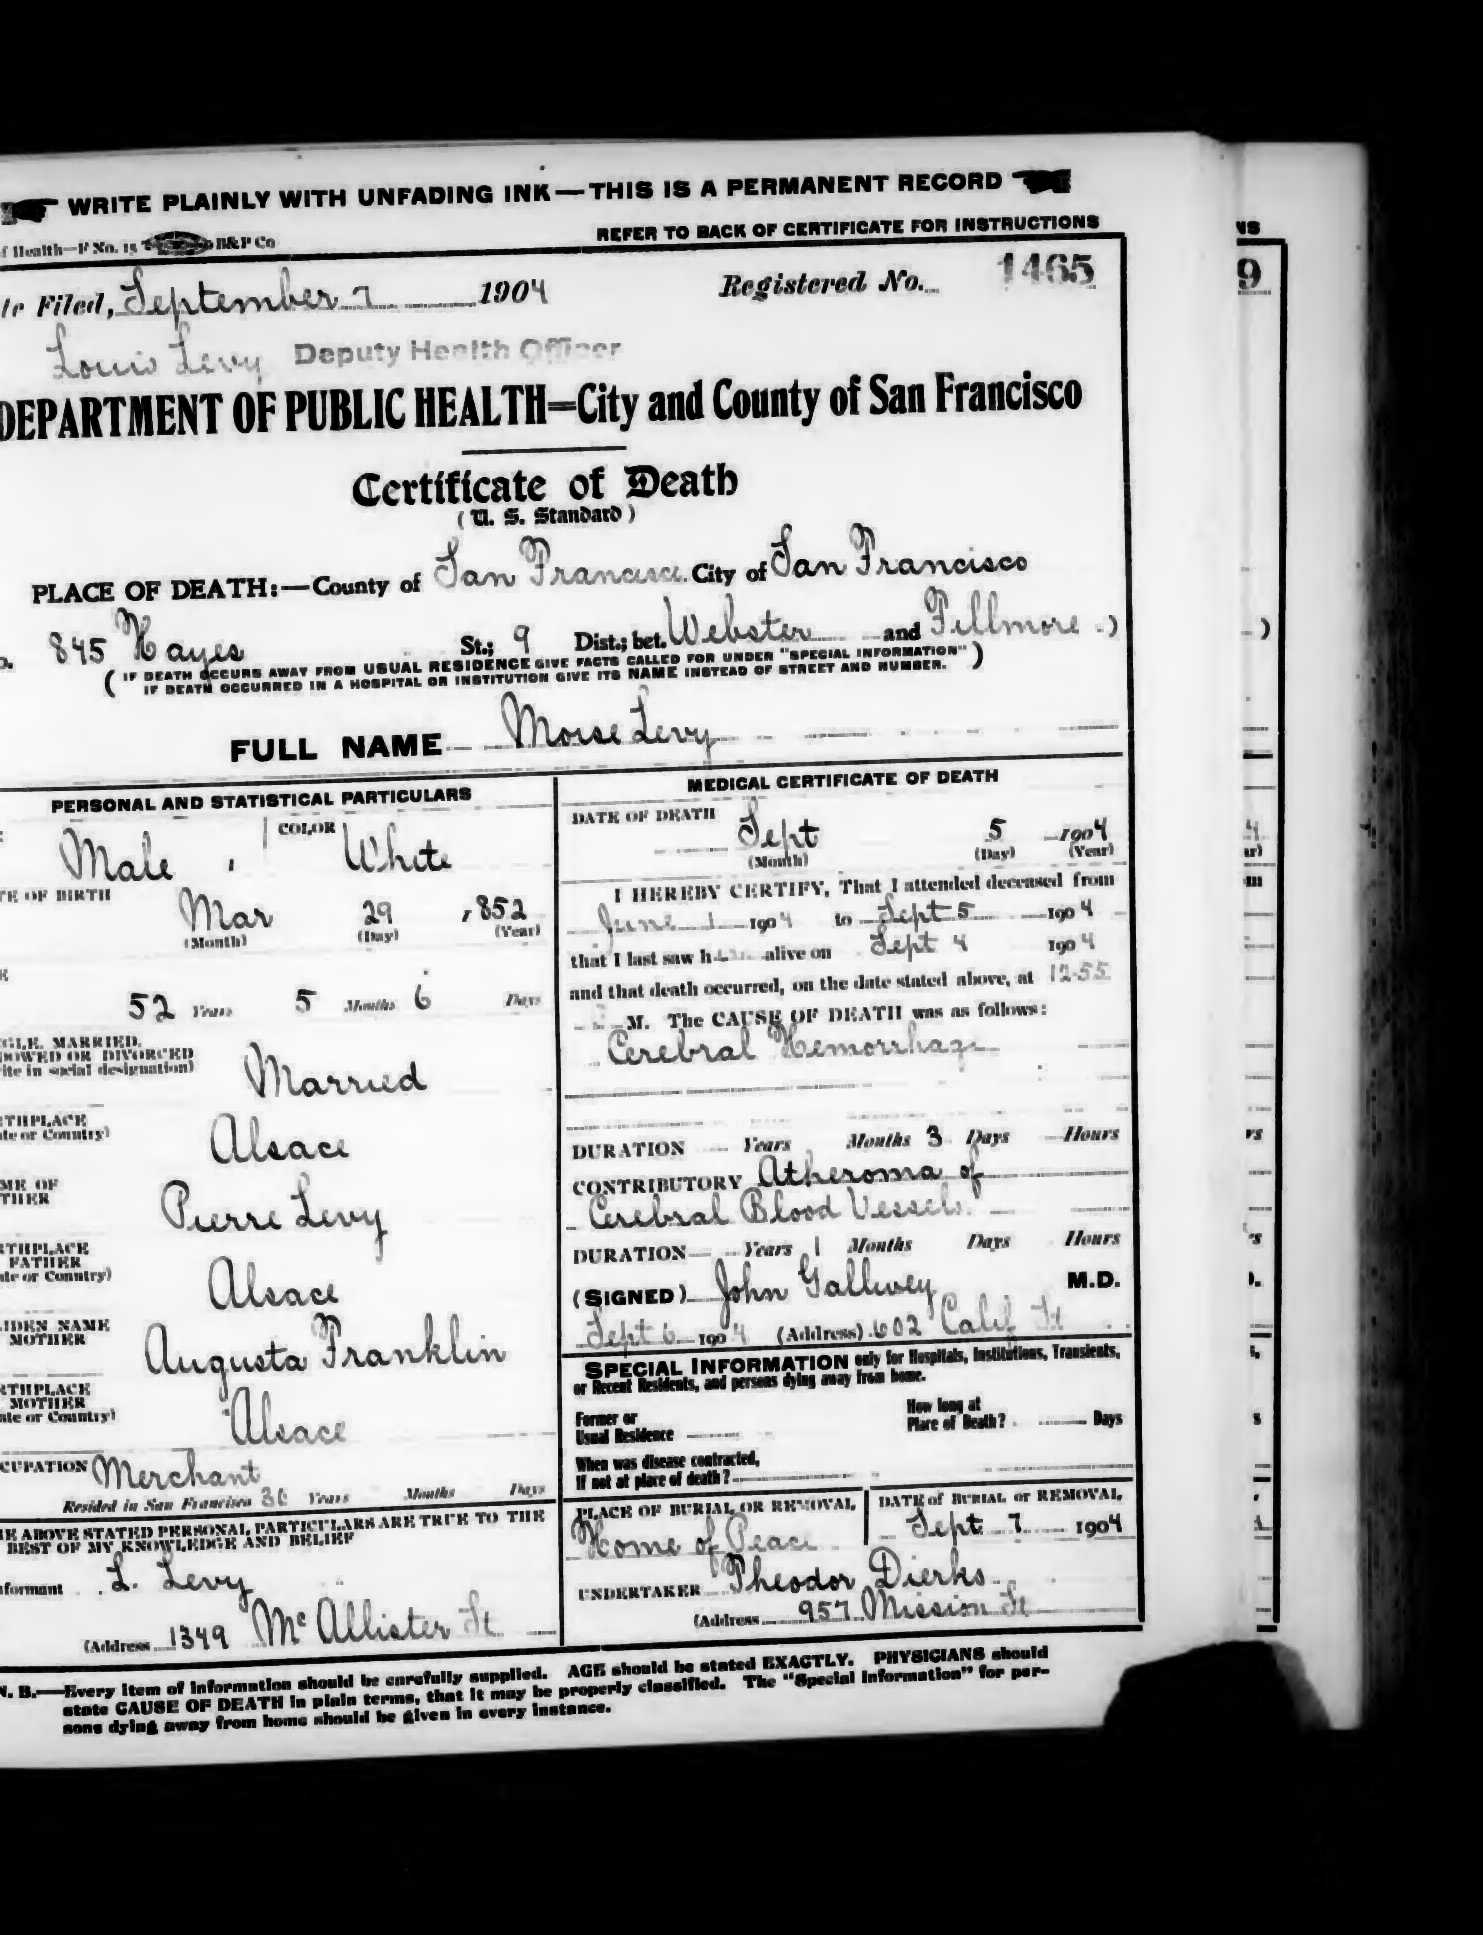 WRITE PLAINLY WITH UNFADING INK—THIS IS A PERMANENT RECORD
f Health—F No. 15 B&P Co
REFER TO BACK OF CERTIFICATE FOR INSTRUCTIONS
te Filed, September 7 1904
Registered No. 1465
Louis Levy Deputy Health Officer
DEPARTMENT OF PUBLIC HEALTH=City and County of San Francisco
Certificate of Death
(U. S. Standard)
PLACE OF DEATH:—County of San Francisco City of San Francisco
o. 845 Hayes St.; 9 Dist.; bet. Webster and Fillmore )
( IF DEATH OCCURS AWAY FROM USUAL RESIDENCE GIVE FACTS CALLED FOR UNDER "SPECIAL INFORMATION" )
IF DEATH OCCURRED IN A HOSPITAL OR INSTITUTION GIVE ITS NAME INSTEAD OF STREET AND NUMBER.
FULL NAME Moise Levy
PERSONAL AND STATISTICAL PARTICULARS
Male COLOR White
TE OF BIRTH
Mar 29 1852
(Month) (Day) (Year)
52 Years 5 Months 6 Days
GLE, MARRIED,
DOWED OR DIVORCED
ite in social designation)
Married
RTHPLACE
ate or Country)
Alsace
ME OF
THER
Pierre Levy
RTHPLACE
FATHER
ate or Country)
Alsace
IDEN NAME
MOTHER
Augusta Franklin
RTHPLACE
MOTHER
ate or Country)
Alsace
CUPATION Merchant
Resided in San Francisco 30 Years Months Days
E ABOVE STATED PERSONAL PARTICULARS ARE TRUE TO THE
BEST OF MY KNOWLEDGE AND BELIEF
nformant L. Levy
(Address 1349 McAllister St
MEDICAL CERTIFICATE OF DEATH
DATE OF DEATH
Sept 5 1904
(Month) (Day) (Year)
I HEREBY CERTIFY, That I attended deceased from
June 1 1904 to Sept 5 1904
that I last saw him alive on Sept 4 1904
and that death occurred, on the date stated above, at 12-55
M. The CAUSE OF DEATH was as follows:
Cerebral Hemorrhage
DURATION Years Months 3 Days Hours
CONTRIBUTORY Atheroma of
Cerebral Blood Vessels
DURATION Years 1 Months Days Hours
(SIGNED) John Gallwey M.D.
Sept 6 1904 (Address) 602 Calif St
SPECIAL INFORMATION only for Hospitals, Institutions, Transients,
or Recent Residents, and persons dying away from home.
Former or
Usual Residence
How long at
Place of Death? Days
When was disease contracted,
If not at place of death?
PLACE OF BURIAL OR REMOVAL
Home of Peace
DATE of BURIAL or REMOVAL
Sept 7 1904
UNDERTAKER Theodor Dierks
(Address 957 Mission St
N. B.—Every item of information should be carefully supplied. AGE should be stated EXACTLY. PHYSICIANS should
state CAUSE OF DEATH in plain terms, that it may be properly classified. The "Special Information" for per-
sons dying away from home should be given in every instance.
NS
9